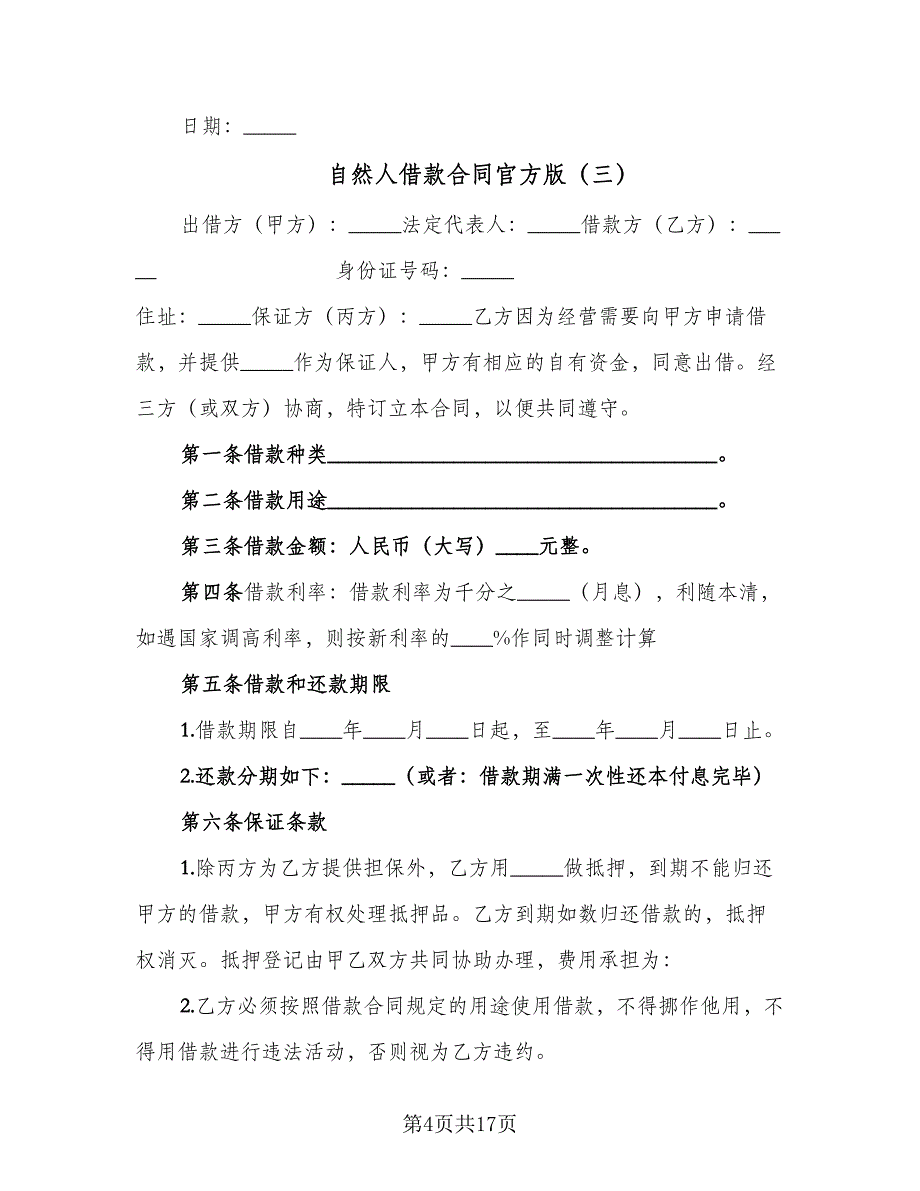 日期：_____
自然人借款合同官方版（三）
出借方（甲方）：_____法定代表人：_____借款方（乙方）：___
__ 身份证号码：_____
住址：_____保证方（丙方）：_____乙方因为经营需要向甲方申请借
款，并提供_____作为保证人，甲方有相应的自有资金，同意出借。经
三方（或双方）协商，特订立本合同，以便共同遵守。
第一条借款种类_____________________________________。
第二条借款用途_____________________________________。
第三条借款金额：人民币（大写）____元整。
第四条借款利率：借款利率为千分之_____（月息），利随本清，
如遇国家调高利率，则按新利率的____%作同时调整计算
第五条借款和还款期限
1.借款期限自____年____月____日起，至____年____月____日止。
2.还款分期如下：_____（或者：借款期满一次性还本付息完毕）
第六条保证条款
1.除丙方为乙方提供担保外，乙方用_____做抵押，到期不能归还
甲方的借款，甲方有权处理抵押品。乙方到期如数归还借款的，抵押
权消灭。抵押登记由甲乙双方共同协助办理，费用承担为：
2.乙方必须按照借款合同规定的用途使用借款，不得挪作他用，不
得用借款进行违法活动，否则视为乙方违约。
第4页共17页